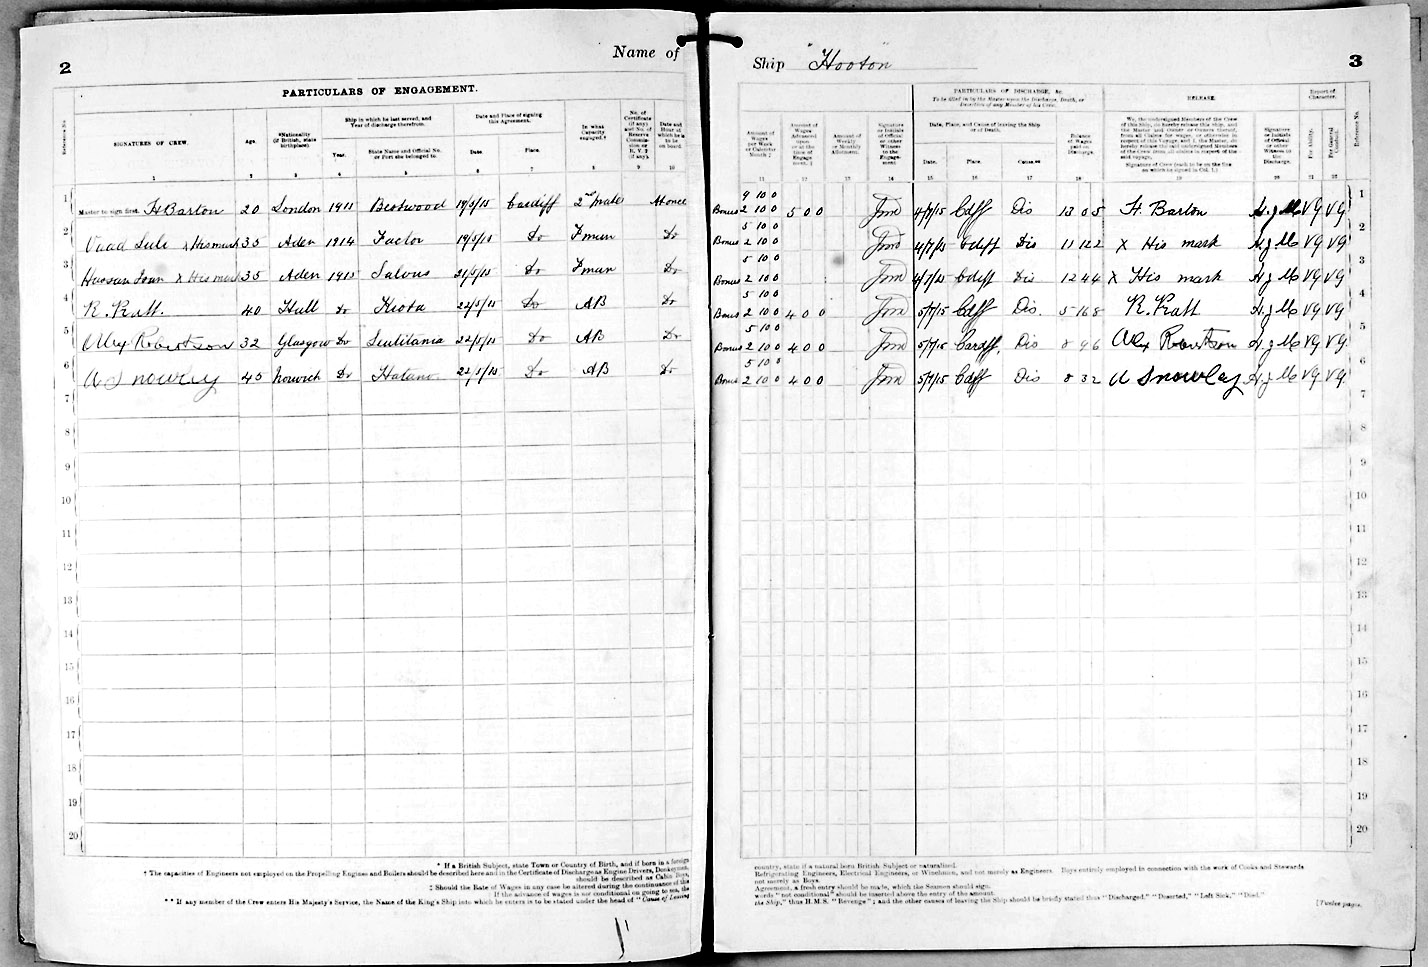 2
Name of
Ship "Hooton"
3
PARTICULARS OF ENGAGEMENT.
Reference No.
SIGNATURES OF CREW.
Age.
*Nationality (if British, state birthplace).
Ship in which he last served, and Year of discharge therefrom.
Year.
State Name and Official No. or Port she belonged to.
Date and Place of signing this Agreement.
Date
Place.
In what Capacity engaged.
No. of Certificate (if any) and No. of Reserve Commission or R.V.2 (if any).
Date and Hour at which he is to be on board.
1 2 3 4 5 6 7 8 9 10
Amount of Wages per Week or Calendar Month
Amount of Wages Advanced upon or at the time of Engagement.
Amount of Weekly or Monthly Allotment.
Signature or Initials of Official or other Witness to the Engagement
PARTICULARS OF DISCHARGE, &c.
To be filled in by the Master upon the Discharge, Death, or Desertion of any Member of his Crew.
Date, Place, and Cause of leaving the Ship or of Death.
Date.
Place.
Cause.**
Balance of Wages paid on Discharge.
RELEASE.
We, the undersigned Members of the Crew of this Ship, do hereby release this ship, and the Master and Owner or Owners thereof, from all Claims for wages, or otherwise in respect of this Voyage and I, the Master, do hereby release the said undersigned Members of the Crew from all claims in respect of the said voyage.
Signature of Crew (each to be on the line on which he signed in Col. 1.)
Signature or Initials of Official or other Witness to the Discharge.
Report of Character.
For Ability.
For General Conduct.
Reference No.
11 12 13 14 15 16 17 18 19 20 21 22
1 Master to sign first. H Barton 20 London 1911 Bestwood 19/5/15 Cardiff 2nd Mate At once 9 10 0 Bonus 2 10 0 5 0 0 4/7/15 Cdff Dis 13 0 5 H. Barton VG VG 1
2 x His mark 35 Aden 1914 Factor 19/5/15 Do Fman Do 5 10 0 Bonus 2 10 0 4/7/15 Cdiff Dis 11 12 2 X His mark VG VG 2
3 x His mark 35 Aden 1915 21/5/15 Do Fman Do 5 10 0 Bonus 2 10 0 4/7/15 Cdiff Dis 12 4 4 X His mark VG VG 3
4 R. Pratt. 40 Hull Do Kioto 22/5/15 Do AB Do 5 10 0 Bonus 2 10 0 4 0 0 5/7/15 Cdff Dis. 5 16 8 R. Pratt VG VG 4
5 Alex Robertson 32 Glasgow Do 22/5/15 Do AB Do 5 10 0 Bonus 2 10 0 4 0 0 5/7/15 Cardiff, Dis 8 9 6 Alex Robertson VG VG 5
6 A Snowley 45 Norwich Do 22/5/15 Do AB Do 5 10 0 Bonus 2 10 0 4 0 0 5/7/15 Cdff Dis 8 3 2 A Snowley VG VG 6
7 7
8 8
9 9
10 10
11 11
12 12
13 13
14 14
15 15
16 16
17 17
18 18
19 19
20 20
* If a British Subject, state Town or Country of Birth, and if born in a foreign
country, state if a natural born British Subject or naturalised.
† The capacities of Engineers not employed on the Propelling Engines and Boilers should be described here and in the Certificate of Discharge as Engine Drivers, Donkeymen,
Refrigerating Engineers, Electrical Engineers, or Winchmen, and not merely as Engineers. Boys entirely employed in connection with the work of Cooks and Stewards
should be described as Cabin Boys,
not merely as Boys.
‡ Should the Rate of Wages in any case be altered during the continuance of the
Agreement, a fresh entry should be made, which the Seamen should sign.
If the advance of wages is not conditional on going to sea, the
words "not conditional" should be inserted above the entry of the amount.
** If any member of the Crew enters His Majesty's Service, the Name of the King's Ship into which he enters is to be stated under the head of "Cause of Leaving
the Ship," thus H.M.S. "Revenge"; and the other causes of leaving the Ship should be briefly stated thus "Discharged," "Deserted," "Left Sick," "Died."
[Twelve pages.